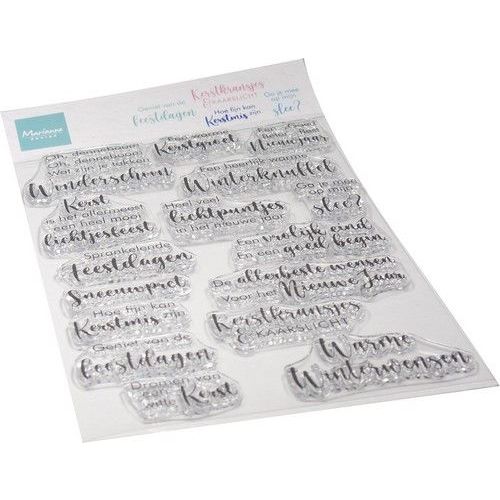 Marianne
DESIGN
Geniet van de
feestdagen
Kerstkransjes
& KAARSLICHT
Hoe fijn kan
Kerstmis zijn
Ga je mee
op mijn
slee?
Oh, denneboom
Oh, dennenboom
Wat zijn je takken
Wonderschoon
Een warme
Kerstgroet
Nieuwjaar
Een heerlijk warme
Winterknuffel
Kerst
is het allernmeest
een heel mooi
lichtjesfeest
Heel veel
lichtpuntjes
in het nieuwe jaar
Ga je mee
op mijn
slee?
Sprankelende
feestdagen
Een vrolijk eind
En een goed begin
Sneeuwpret
De allerbeste wensen
Voor het Nieuwe Jaar
Hoe fijn kan
Kerstmis zijn
Kerstkransjes
& KAARSLICHT
Geniet van de
feestdagen
Warme
Winterwensen
Dromen van
een
witte Kerst